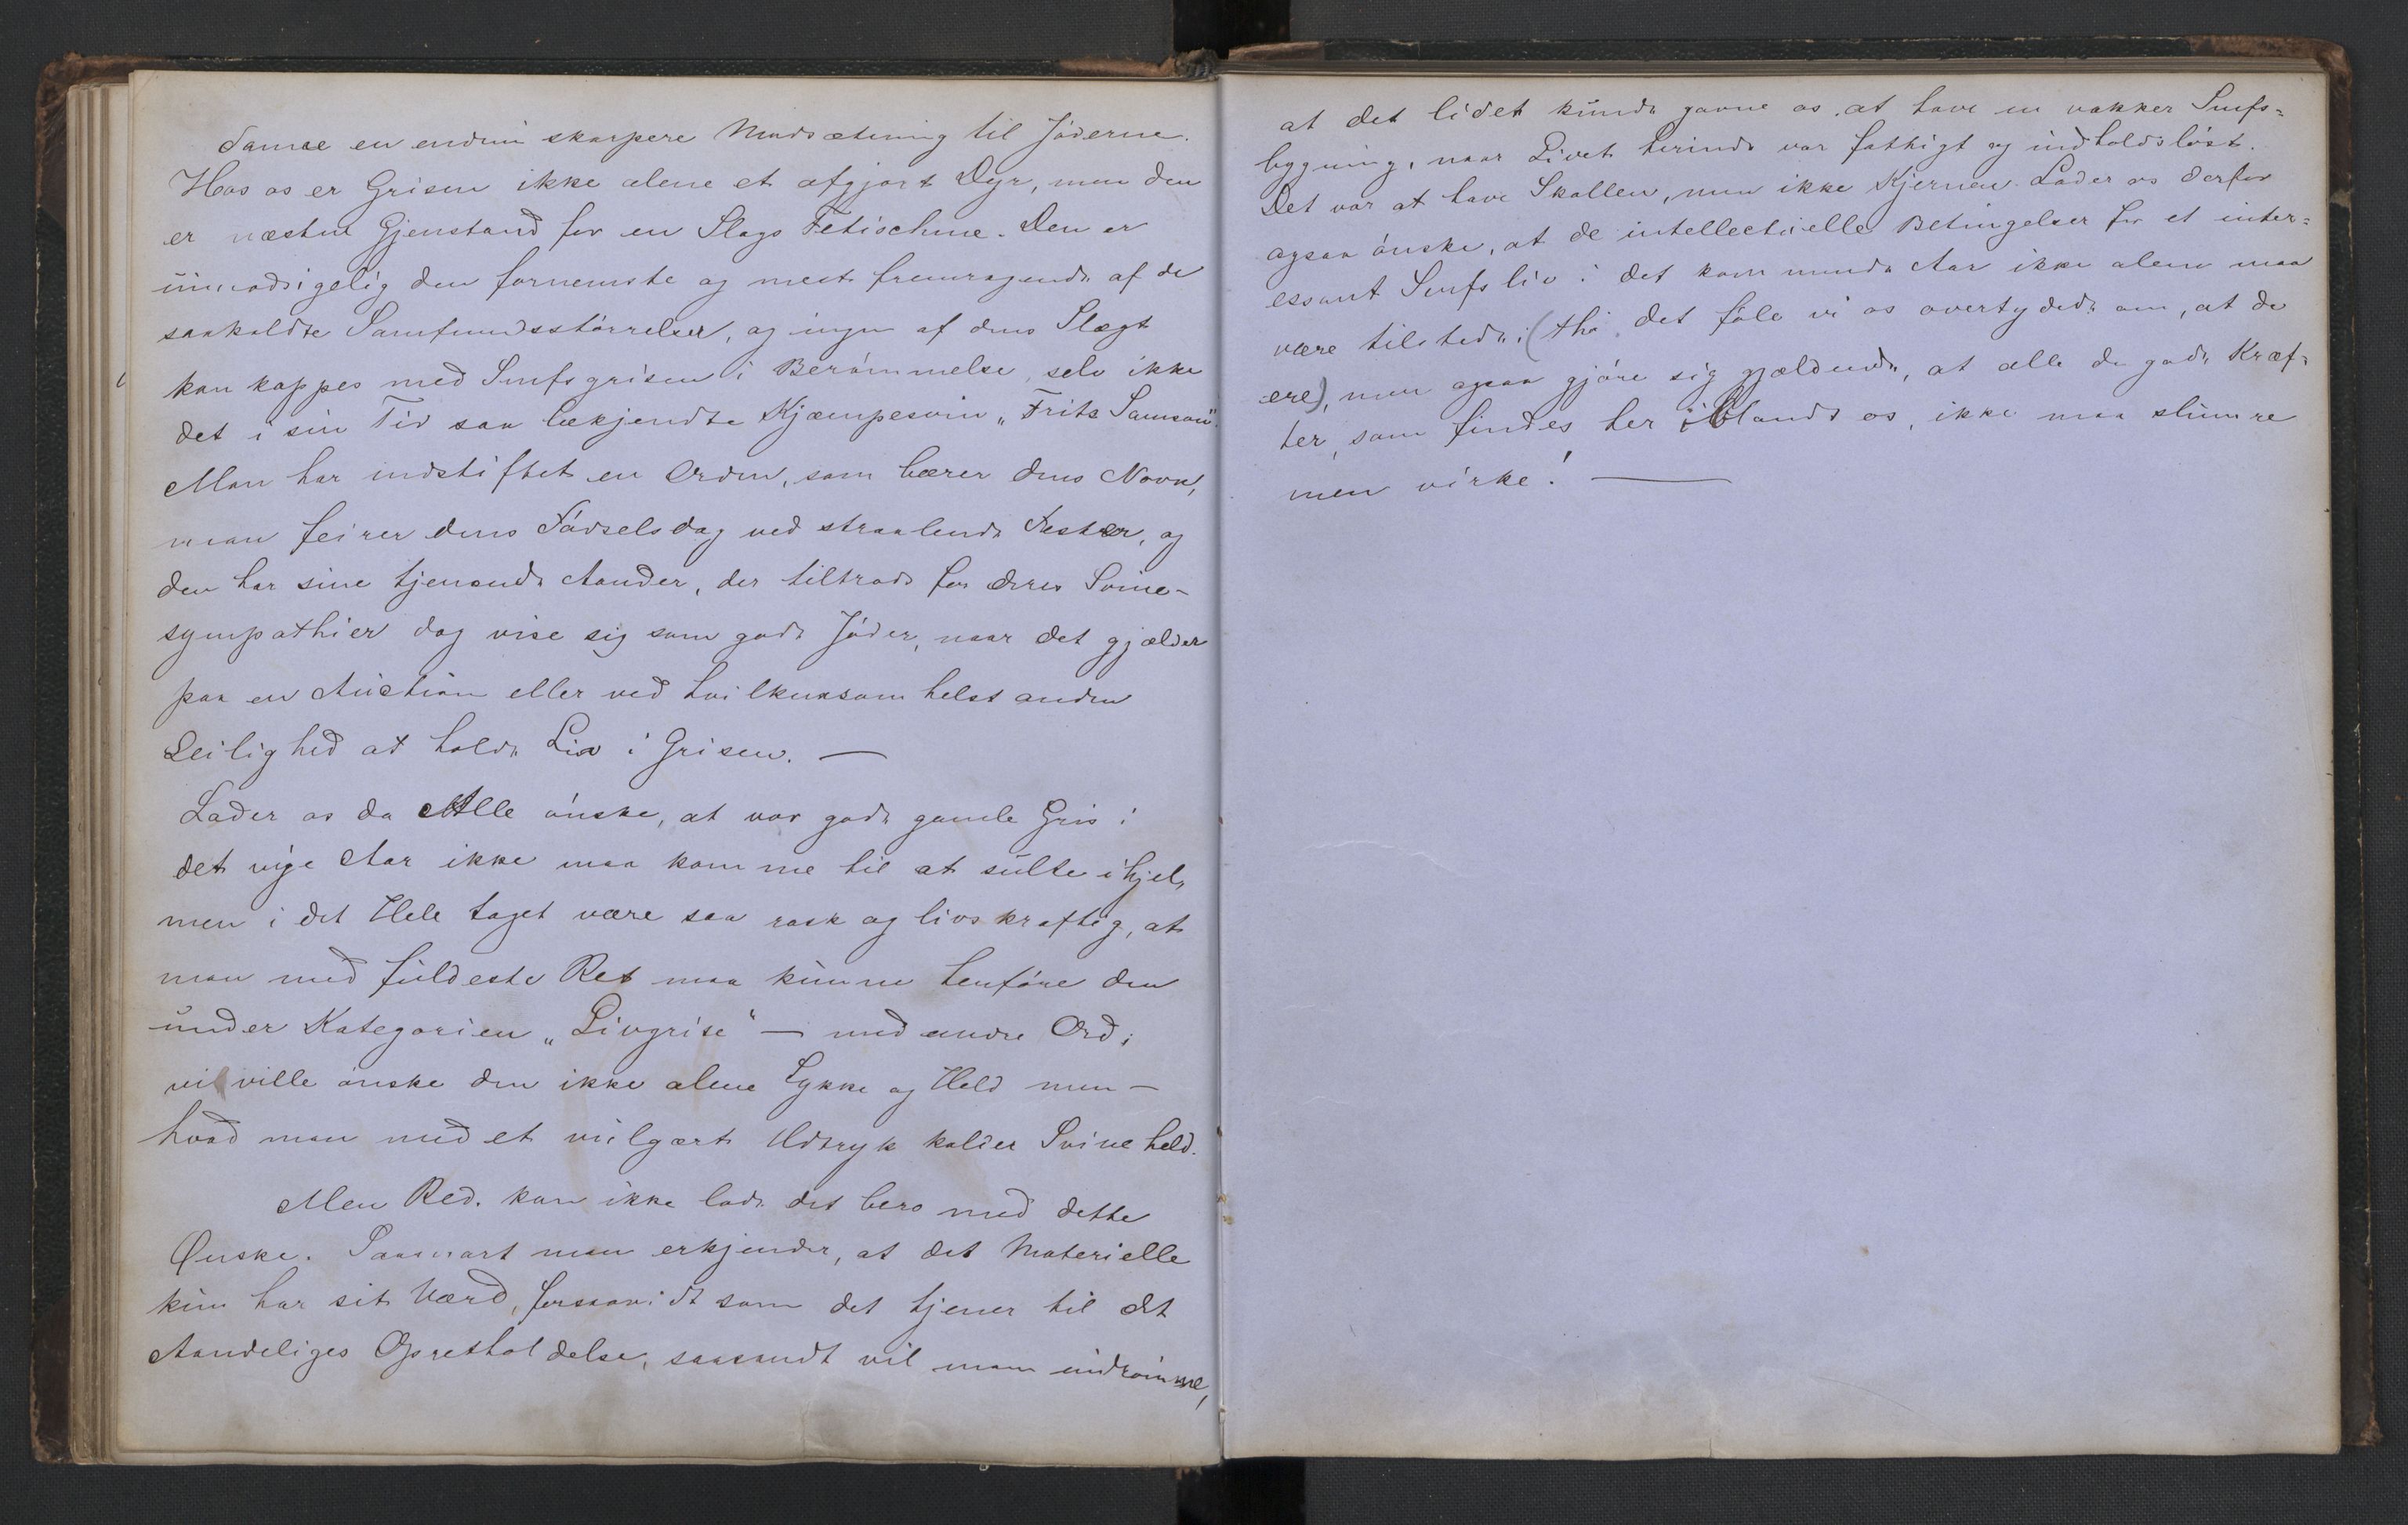 danne en endnu skarpere Modsætning til Jøderne.
Hos os er Grisen ikke alene et afgjort Dyr, men den
er næsten Gjenstand for en Slags Fetischme. Den er
uimodsigelig den fornemste og mest fremragende af de
saakaldte Samfundsstørrelser, og ingen af dens Slægt
kan kappes med Smfsgrisen i Berømmelse, selv ikke
det i sin Tid saa bekjendte Kjæmpesvin „Fritz Samson".
Man har indstiftet en Orden, som bærer dens Navn,
man feirer dens Fødselsdag ved straalende Fester, og
den har sine tjenende Aander, der tiltrods for deres Svine-
sympathier dog vise sig som gode Jøder, naar det gjælder
paa en Auction eller ved hvilkensomhelst anden
Leilighed at holde Liv i Grisen. —
Lader os da Alle ønske, at vor gode gamle Gris i
det nye Aar ikke maa komme til at sulte ihjel,
men i det Hele taget være saa rask og livskraftig, at
man med fuldeste Ret maa kunne henføre den
under Kategorien „Livgrise" — med andre Ord;
vi ville ønske den ikke alene Lykke og Held men —
hvad man med et vulgært Udtryk kalder Svineheld.
Men Red. kan ikke lade det bero med dette
Ønske. Saasnart man erkjender, at det Materielle
kun har sit Værd, forsaavidt som det tjener til det
Aandeliges Opretholdelse, saasandt vil man indrømme,
at det lidet kunde gavne os at have en vakker Smfs=
bygning, naar Livet derinde var fattigt og indholdsløst.
Det var at have Skallen, men ikke Kjernen. Lader os derfor
ogsaa ønske, at de intellectuelle Betingelser for et inter=
essant Smfsliv i det kommende Aar ikke alene maa
være tilstede, (thi det føle vi os overtydede om, at de
ere), men ogsaa gjøre sig gjældende, at alle de gode Kræf=
ter, som findes her iblandt os, ikke maa slumre
men virke! —